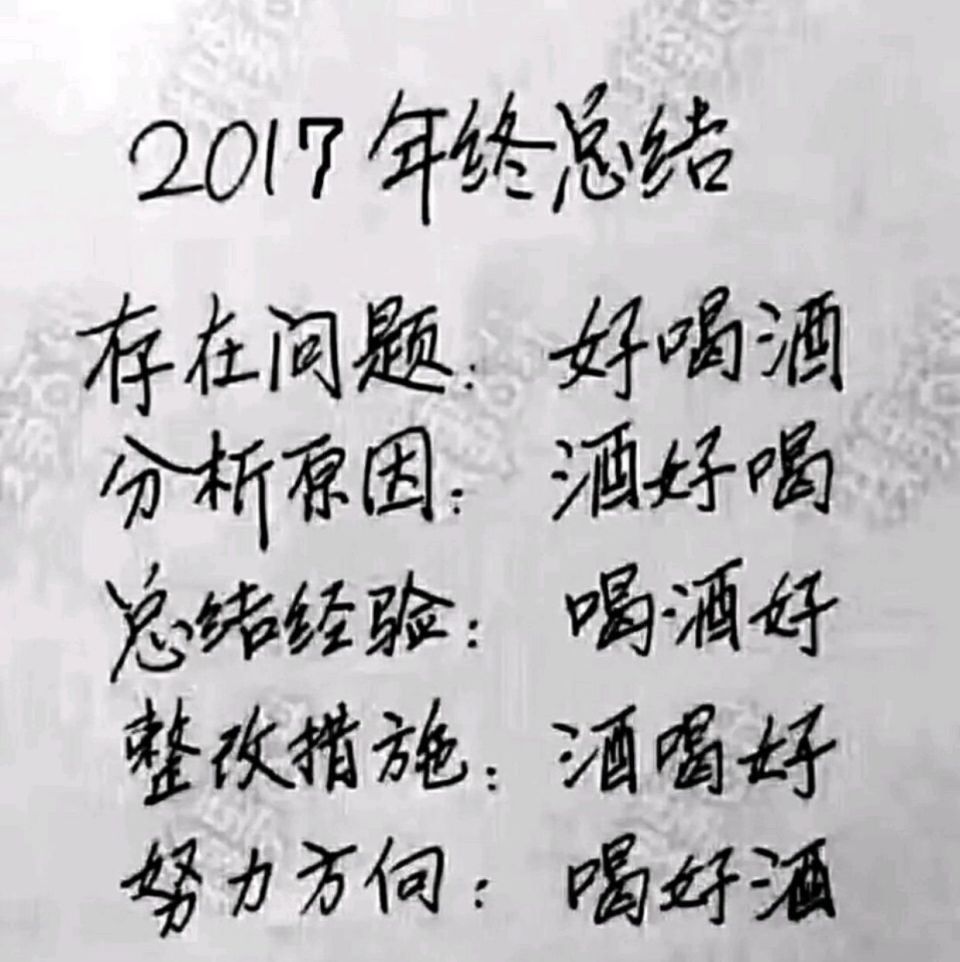 2017年终总结
存在问题：好喝酒
分析原因：酒好喝
总结经验：喝酒好
整改措施：酒喝好
努力方向：喝好酒